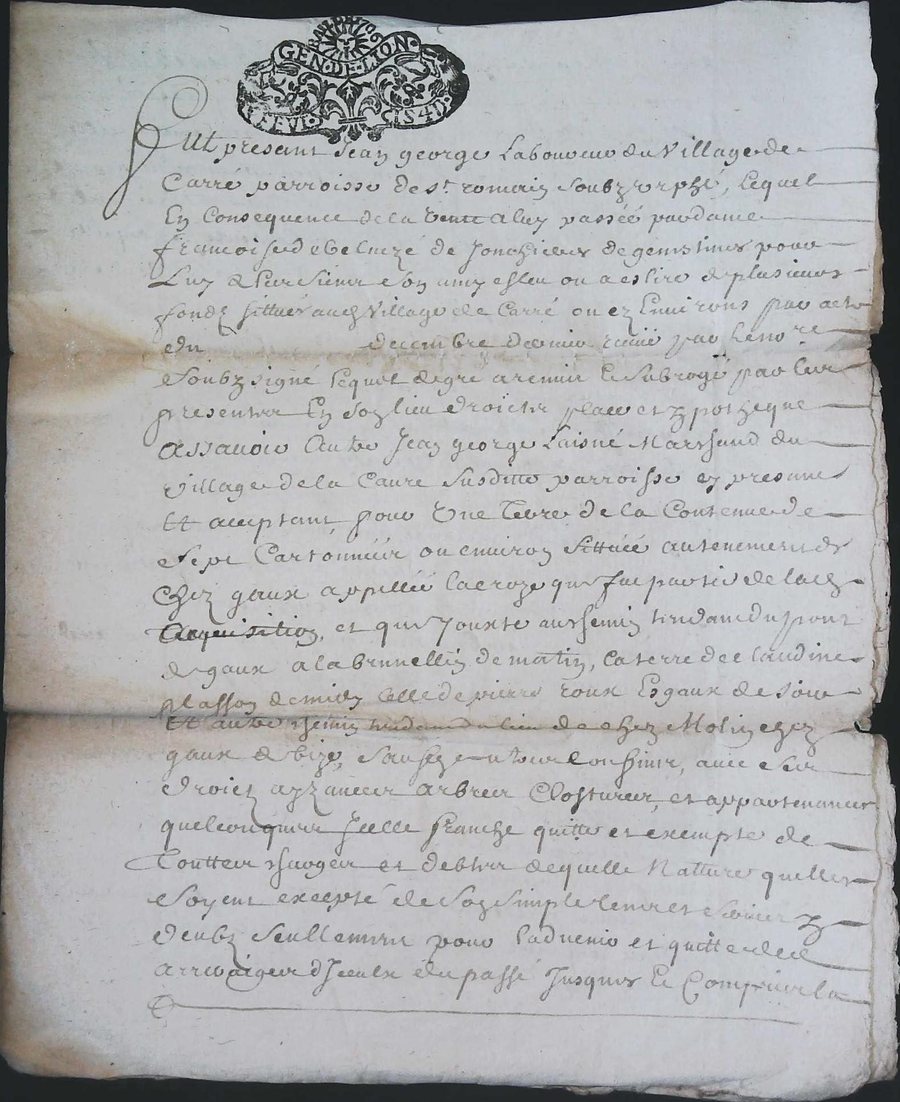 GEN·DE·LION
Fut present Jean george Laboureur du Village de
Carré parroisse de St romain soubz urphé, lequel
En consequence de la vente a luy passée par dame
francoise de
Luy & les siens son amy esleu ou a eslire de plusieurs
fondz sittués aud Village de Carré ou ez Environs par acte
du decembre dernier receu par le no.re
soubz signé lequel de gré a remis & subrogé par les
presentes En son lieu droictz place et ypotheque
assavoir autre Jean george Laisné Marchand du
village de la Caure susditte parroisse cy present
Et acceptant pour Une Terre de la Contenue de
sept Cartonnées ou environ sittuée au tenement de
Chez gaux appellée la croze qui fait partie de lad
acquisition, et qui jouxte au chemin tendant du pont
de gaux a la de matin, la terre de claudine
plasson de midy celle de pierre roux Es gaux de soir
Et autre chemin tendant du lieu de chez Molin chez
gaux de bize, sauf ses autres confins, avec ses
droictz ayzances arbres Clostures, et appartenances
quelconques Icelle franche quitte et exempte de
Touttes charges et debtes de quelle Nature quelles
soyent excepté de son simple cens et service
deubz seullement pour ladvenir et quitte des
arreraiges d'Iceulx du passé Jusques Et Comprins la